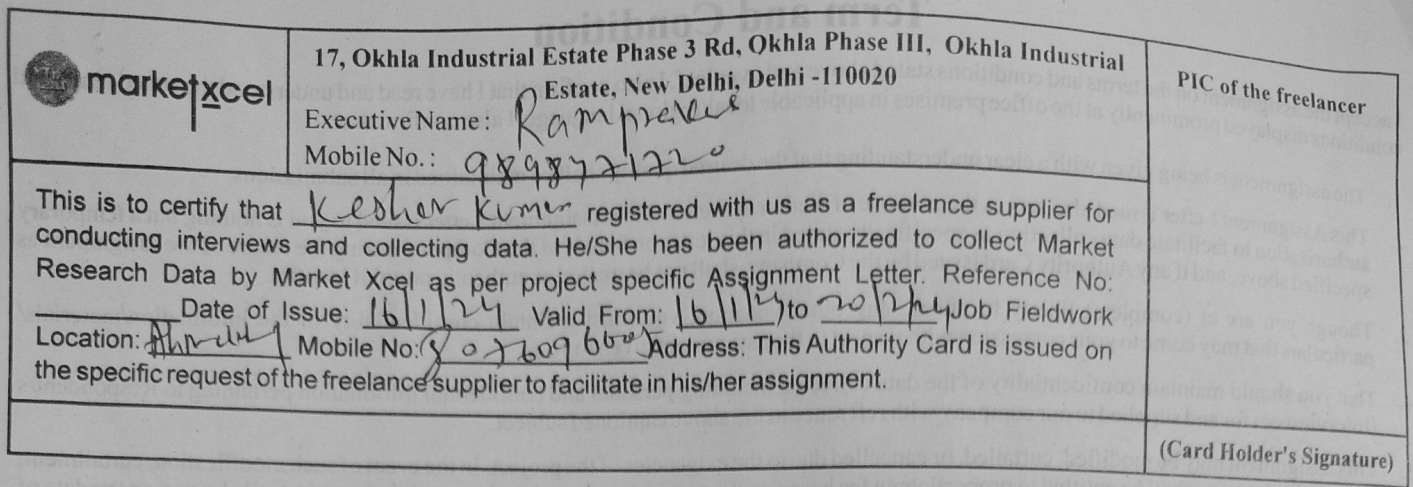 Term and Condition
marketxcel
17, Okhla Industrial Estate Phase 3 Rd, Okhla Phase III, Okhla Industrial
Estate, New Delhi, Delhi -110020
Executive Name:
Mobile No.: 9898721720
PIC of the freelancer
This is to certify that Keshav Kumar registered with us as a freelance supplier for
conducting interviews and collecting data. He/She has been authorized to collect Market
Research Data by Market Xcel as per project specific Assignment Letter. Reference No:
Date of Issue: 16/1/24 Valid From: 16/1/24 to 20/2/24 Job Fieldwork
Location: Mobile No: Address: This Authority Card is issued on
the specific request of the freelance supplier to facilitate in his/her assignment.
(Card Holder's Signature)